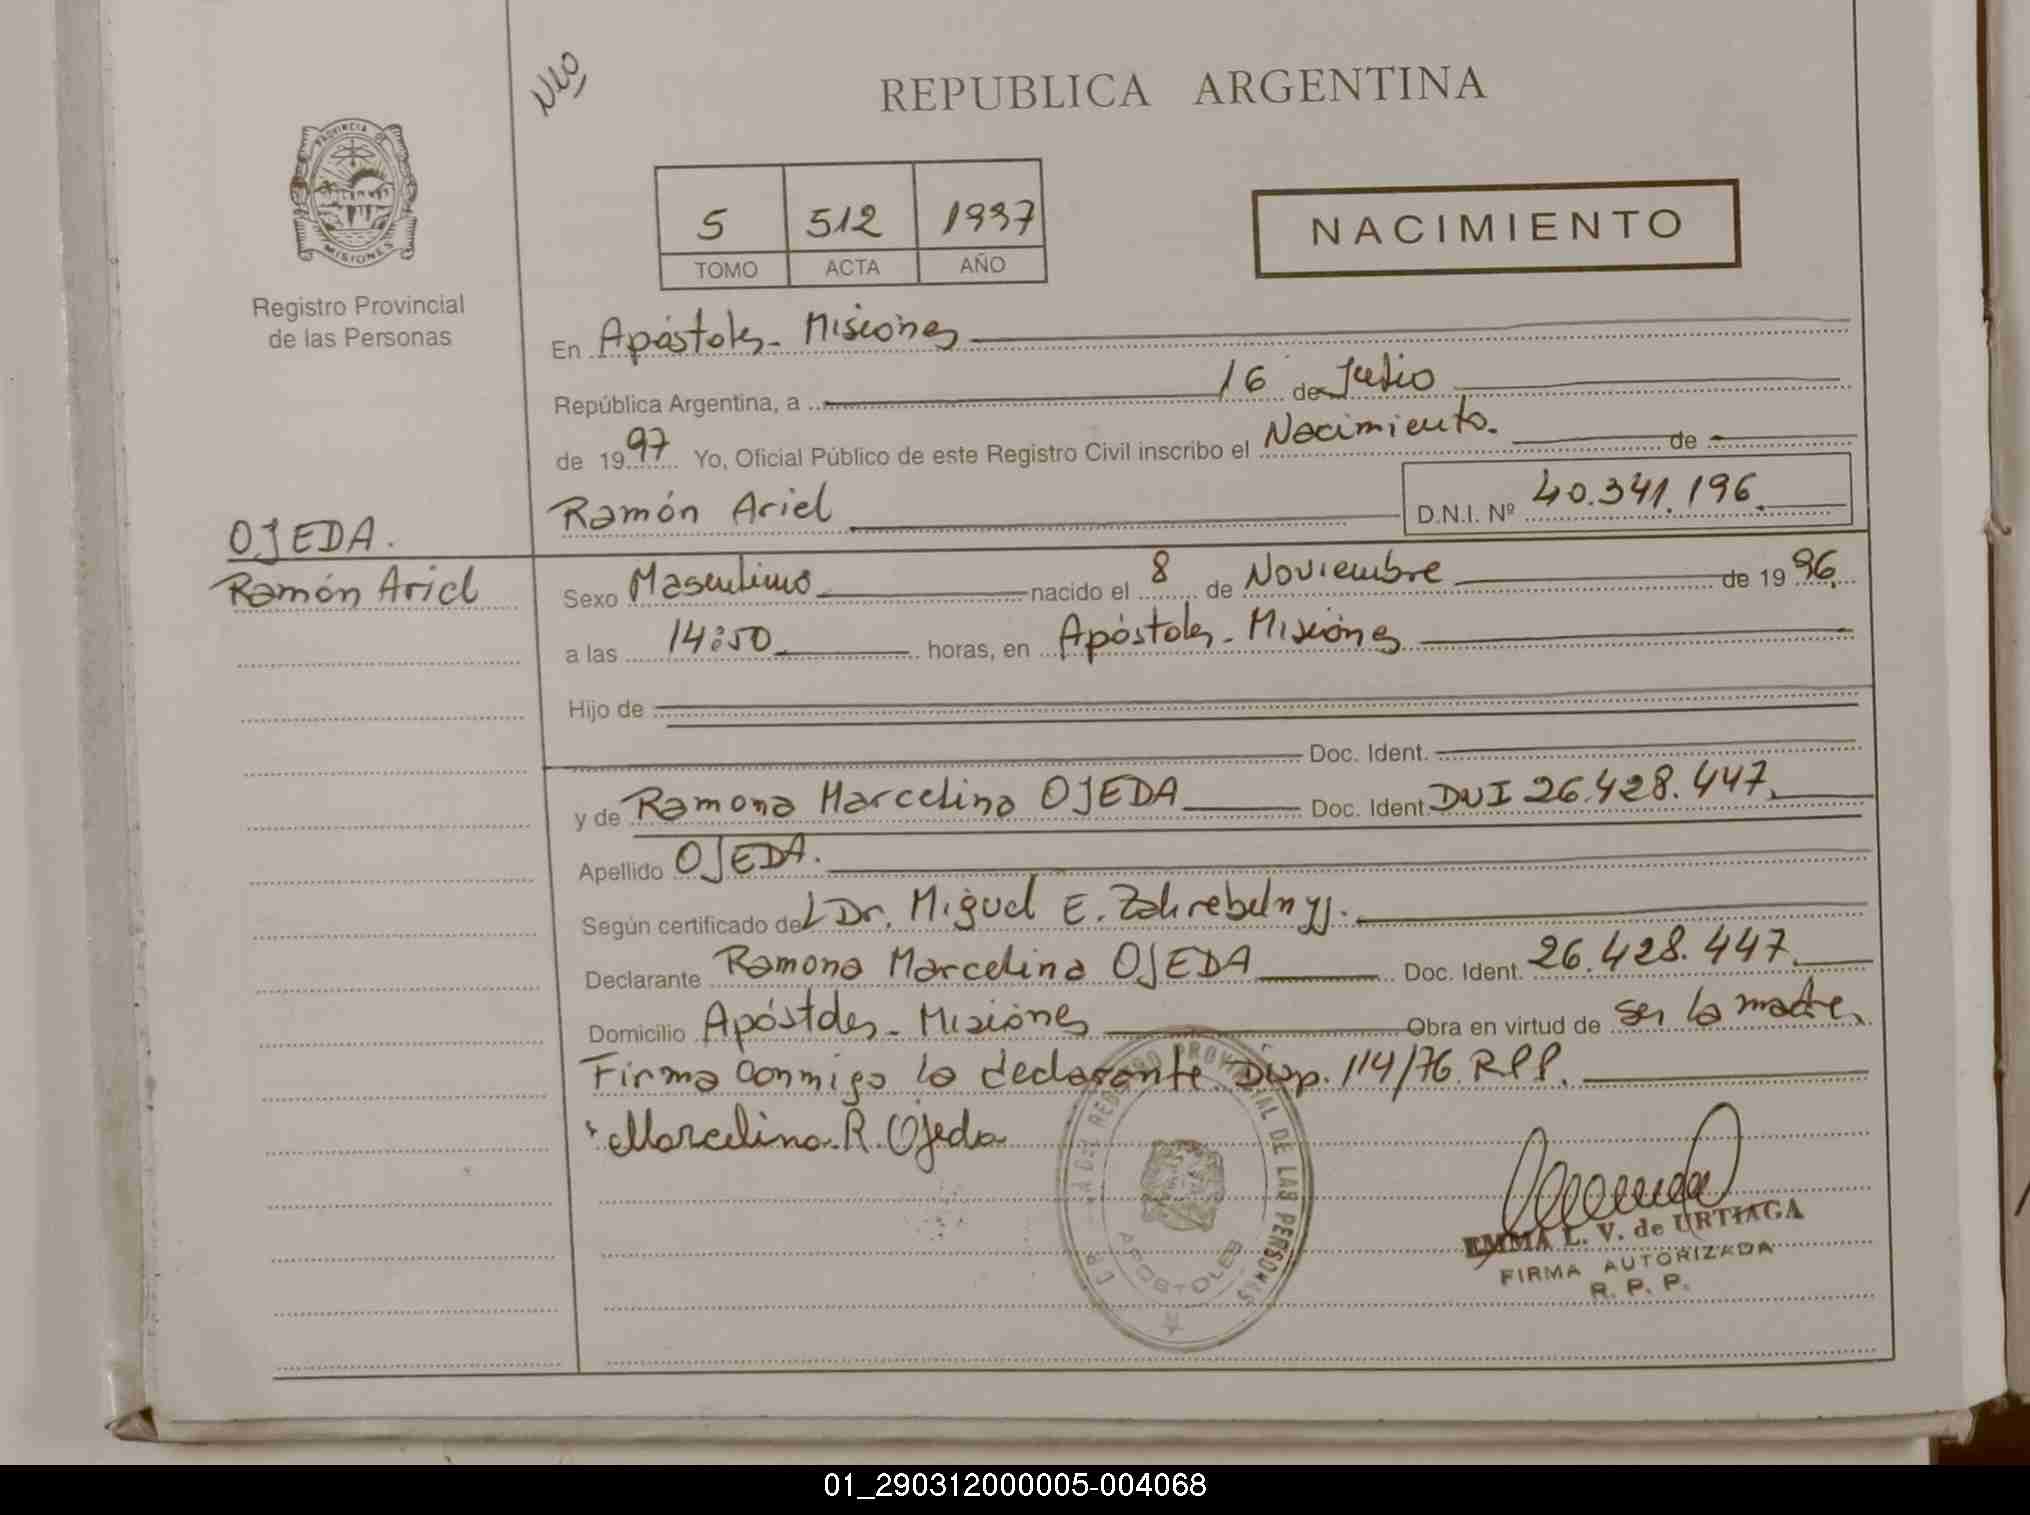 Nac
REPUBLICA ARGENTINA
PROVINCIA DE
MISIONES
Registro Provincial
de las Personas
5 512 1997
TOMO ACTA AÑO
NACIMIENTO
En Apóstoles - Misiones
República Argentina, a 16 de Julio
de 1997 Yo, Oficial Público de este Registro Civil inscribo el Nacimiento. de
Ramón Ariel D.N.I. Nº 40.341.196
OJEDA.
Ramón Ariel
Sexo Masculino nacido el 8 de Noviembre de 1996.
a las 14:50 horas, en Apóstoles - Misiones
Hijo de
Doc. Ident.
y de Ramona Marcelina OJEDA Doc. Ident. DNI 26.428.447.
Apellido OJEDA.
Según certificado del Dr. Miguel E.
Declarante Ramona Marcelina OJEDA Doc. Ident. 26.428.447.
Domicilio Apóstoles - Misiones Obra en virtud de ser la madre.
Firma conmigo la declarante. Disp. 114/76. R.P.P.
Marcelina R. Ojeda
REGISTRO PROVINCIAL DE LAS PERSONAS
APOSTOLES
EMMA L. V. de URTIAGA
FIRMA AUTORIZADA
R. P. P.
01_290312000005-004068